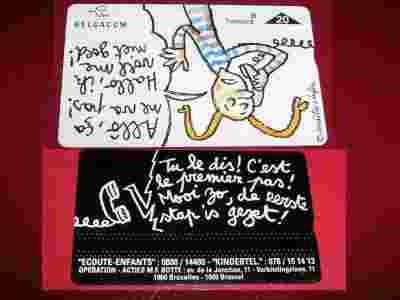 BELGACOM
Telecard
20
Allô, ça
me va pas!
Hallo, ik
voel me
niet goed!
Tu le dis! C'est
le premier pas!
Mooi zo, de eerste
stap is gezet!
"ECOUTE-ENFANTS": 0800 / 14400 - "KINDERTEL": 078 / 15 14 13
OPERATION - ACTIES M.F. BOTTE: av. de la Jonction, 11 - Verbindingslaan, 11
1060 Bruxelles - 1060 Brussel